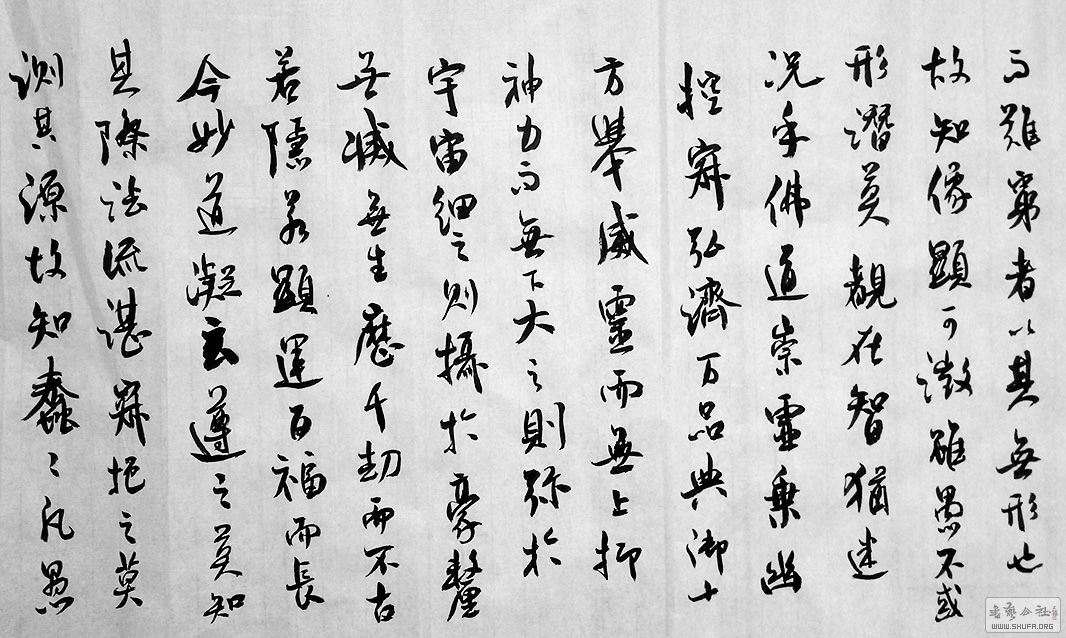 而難窮者以其無形也
故知像顯可徵雖愚不惑
形潛莫覩在智猶迷
況乎佛道崇虛乘幽
控寂弘濟万品典御十
方舉威靈而無上抑
神力而無下大之則弥於
宇宙細之則攝於豪釐
無滅無生歷千劫而不古
若隱若顯運百福而長
今妙道凝玄遵之莫知
其際法流湛寂挹之莫
測其源故知蠢〻凡愚
書藝公社
WWW.SHUFA.ORG